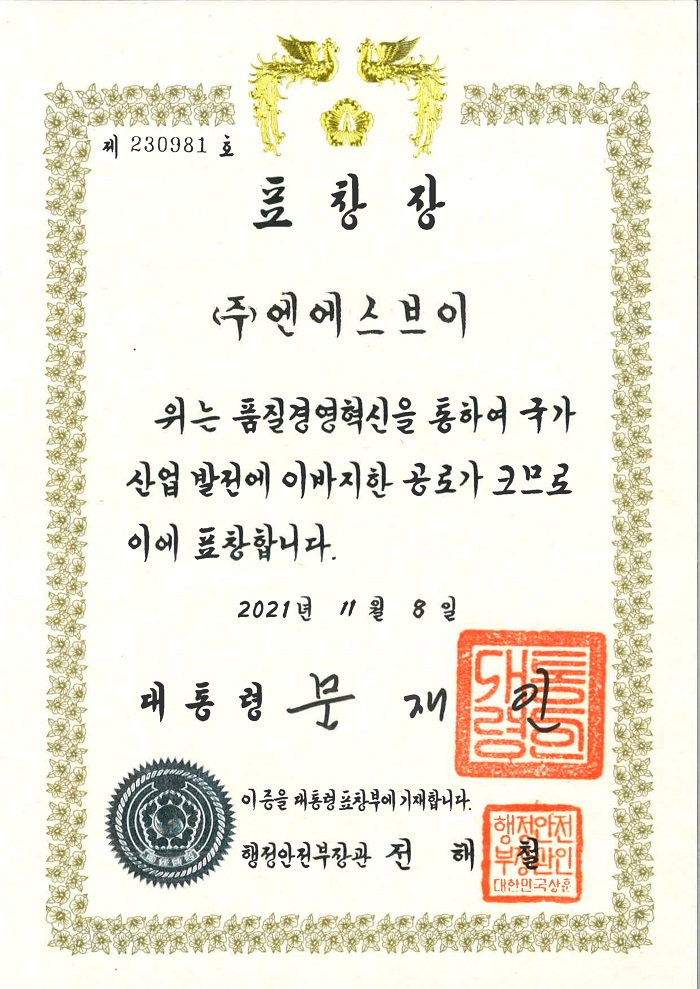 제 230981 호
표 창 장
(주)엔에스브이
위는 품질경영혁신을 통하여 국가
산업 발전에 이바지한 공로가 크므로
이에 표창합니다.
2021년 11월 8일
대통령 문 재 인
대통령의인
이 증을 대통령표창부에 기재합니다.
행정안전부장관 전 해 철
행정안전
부장관인
대한민국상훈